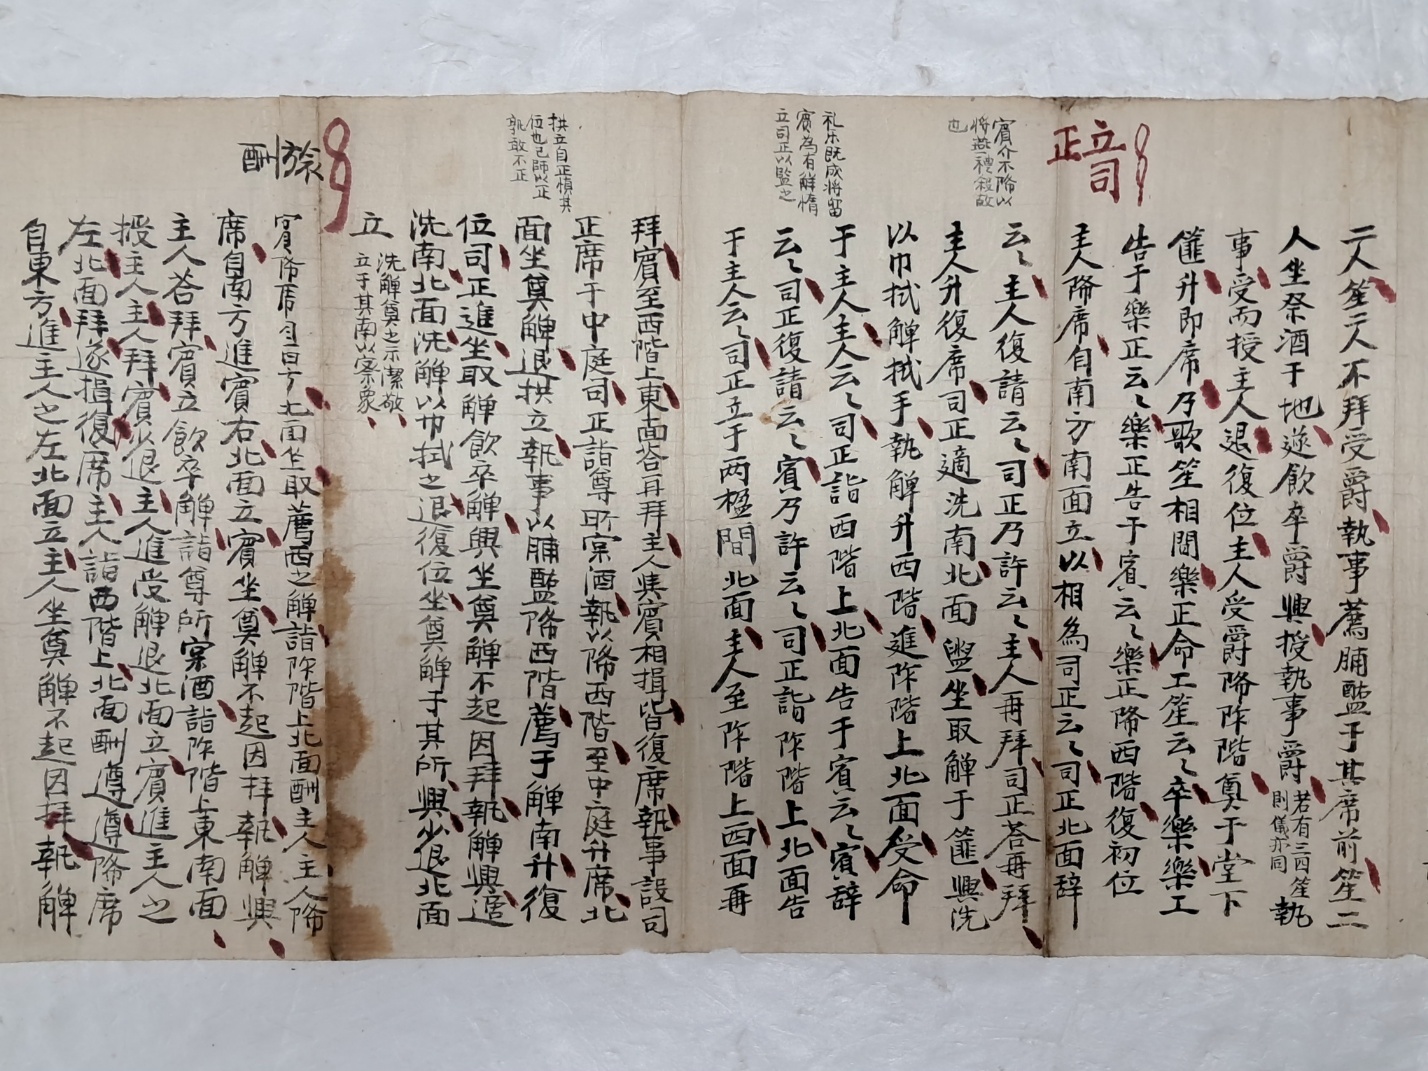 二人笙二人不拜受爵執事薦脯醢于其席前笙二
人坐祭酒于地遂飲卒爵興授執事爵
若有三四笙
則儀亦同
執
事受而授主人退復位主人受爵降阼階奠于堂下
篚升即席乃歌笙相間樂正命工笙云〻卒樂樂工
告于樂正云〻樂正告于賓云〻樂正降西階復初位
立司
正
主人降席自南方南面立以相為司正云〻司正北面辞
云〻主人復請云〻司正乃許云〻主人再拜司正荅再拜
賓介不降以
將燕禮殺故
也
主人升復席司正適洗南北面盥坐取觶于篚興洗
以巾拭觶拭手執觶升西階進阼階上北面受命
于主人主人云〻司正詣西階上北面告于賓云〻賓辞
礼樂既成將留
賓為有觧惰
立司正以監之
云〻司正復請云〻賓乃許云〻司正詣阼階上北面告
于主人云〻司正立于两楹間北面主人至阼階上西面再
拜賓至西階上東面荅再拜主人與賓相揖皆復席執事設司
正席于中庭司正詣尊所寀酒執以降西階至中庭升席北
拱立自正慎其
位也己師以正
孰敢不正
面坐奠觶退拱立執事以脯醢降西階薦于觶南升復
位司正進坐取觶飲卒觶興坐奠觶不起因拜執觶興適
洗南北面洗觶以巾拭之退復位坐奠觶于其所興少退北面
立
洗觶奠之示潔敬
立于其南以察衆
旅
酬
賓降席自南方北面坐取薦西之觶詣阼階上北面酬主人主人降
席自南方進賓右北面立賓坐奠觶不起因拜執觶興
主人荅拜賓立飲卒觶詣尊所寀酒詣阼階上東南面
授主人主人拜賓少退主人進受觶退北面立賓進主人之
左北面拜遂揖復席主人詣西階上北面酬遵遵降席
自東方進主人之左北面立主人坐奠觶不起因拜執觶